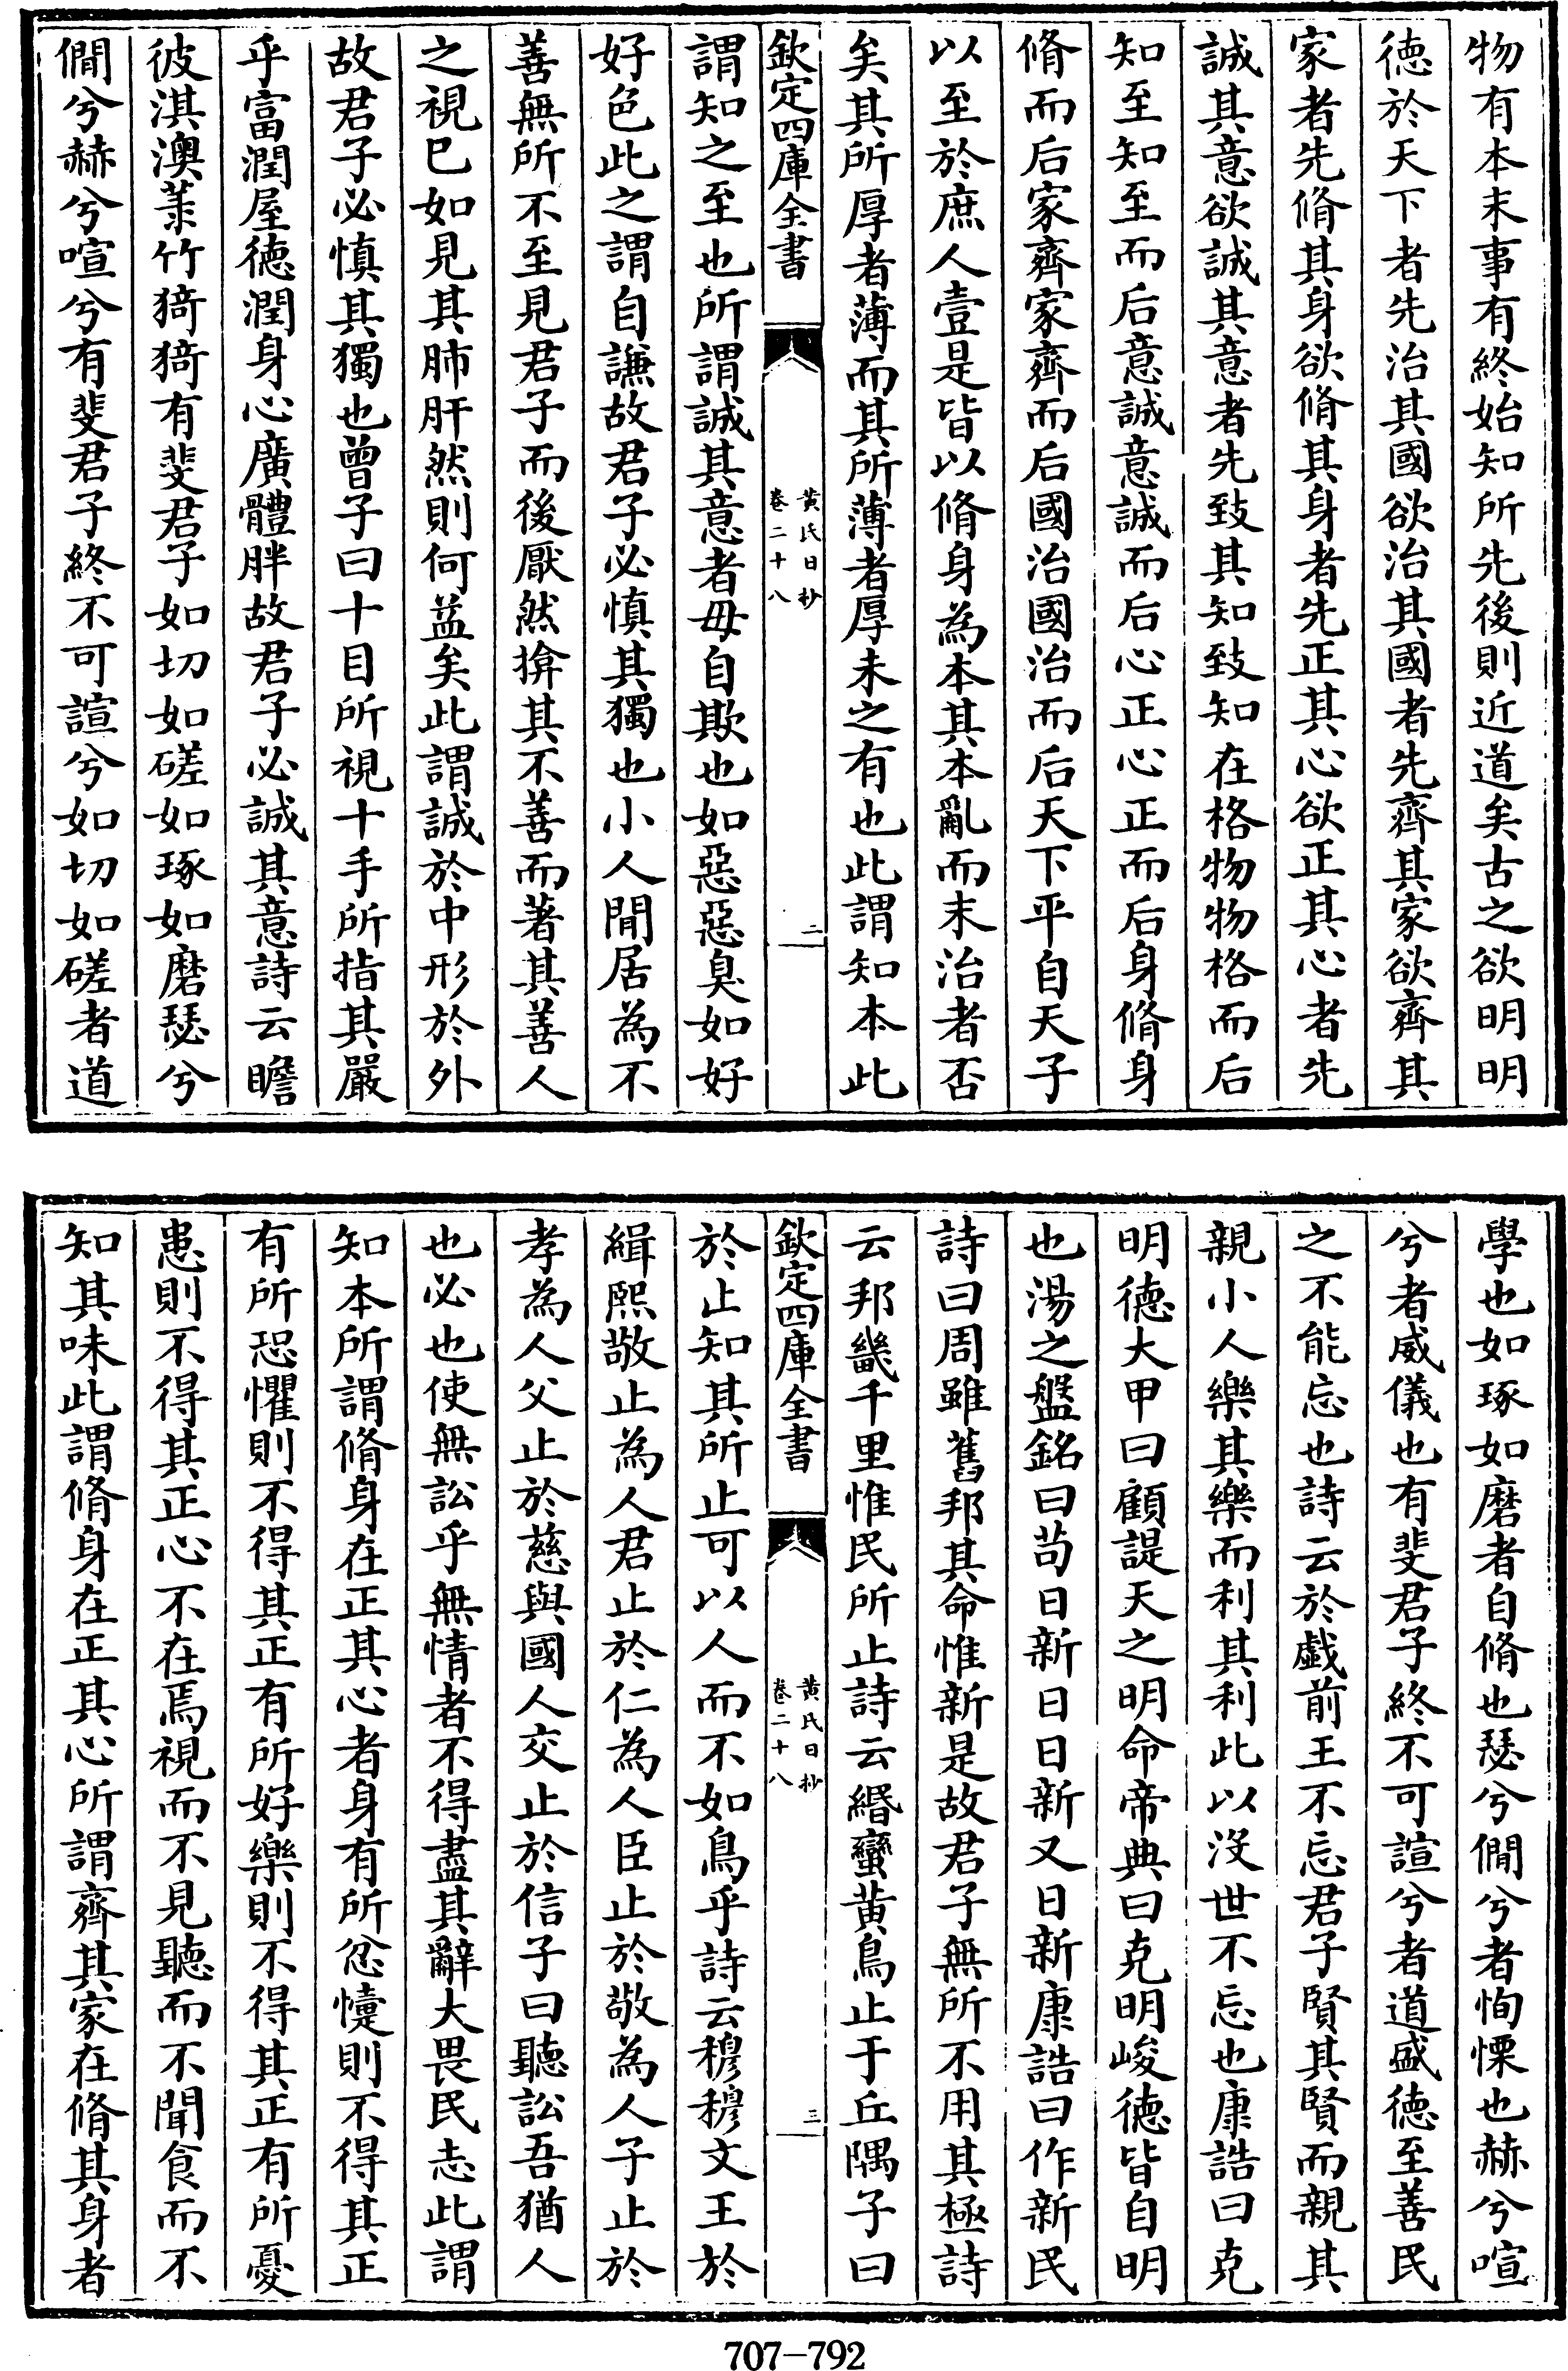 物有本末事有終始知所先後則近道矣古之欲明明
徳於天下者先治其國欲治其國者先齊其家欲齊其
家者先脩其身欲脩其身者先正其心欲正其心者先
誠其意欲誠其意者先致其知致知在格物物格而后
知至知至而后意誠意誠而后心正心正而后身脩身
脩而后家齊家齊而后國治國治而后天下平自天子
以至於庶人壹是皆以脩身為本其本亂而末治者否
矣其所厚者薄而其所薄者厚未之有也此謂知本此
欽定四庫全書
黄氏日抄
卷二十八
二
謂知之至也所謂誠其意者毋自欺也如惡惡臭如好
好色此之謂自謙故君子必慎其獨也小人閒居為不
善無所不至見君子而後厭然揜其不善而著其善人
之視已如見其肺肝然則何益矣此謂誠於中形於外
故君子必慎其獨也曾子曰十目所視十手所指其嚴
乎富潤屋徳潤身心廣體胖故君子必誠其意詩云瞻
彼淇澳菉竹猗猗有斐君子如切如磋如琢如磨瑟兮
僩兮赫兮喧兮有斐君子終不可諠兮如切如磋者道
學也如琢如磨者自脩也瑟兮僩兮者恂慄也赫兮喧
兮者威儀也有斐君子終不可諠兮者道盛徳至善民
之不能忘也詩云於戲前王不忘君子賢其賢而親其
親小人樂其樂而利其利此以沒世不忘也康誥曰克
明徳大甲曰顧諟天之明命帝典曰克明峻徳皆自明
也湯之盤銘曰茍日新日日新又日新康誥曰作新民
詩曰周雖舊邦其命惟新是故君子無所不用其極詩
云邦畿千里惟民所止詩云緡蠻黄鳥止于丘隅子曰
欽定四庫全書
黄氏日抄
卷二十八
三
於止知其所止可以人而不如鳥乎詩云穆穆文王於
緝熙敬止為人君止於仁為人臣止於敬為人子止於
孝為人父止於慈與國人交止於信子曰聽訟吾猶人
也必也使無訟乎無情者不得盡其辭大畏民志此謂
知本所謂脩身在正其心者身有所忿懥則不得其正
有所恐懼則不得其正有所好樂則不得其正有所憂
患則不得其正心不在焉視而不見聽而不聞食而不
知其味此謂脩身在正其心所謂齊其家在脩其身者
707-792